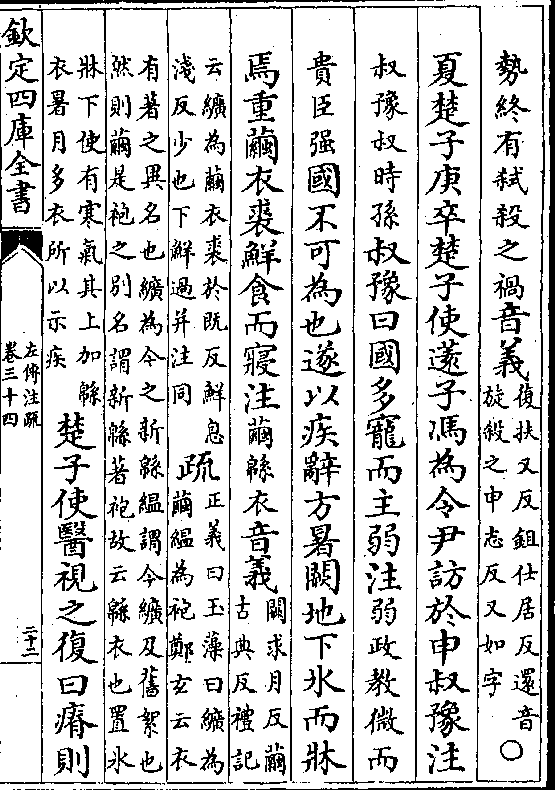 勢終有弒殺之禍音義復扶又反鉏仕居反還音
旋殺之申志反又如字○
夏楚子庚卒楚子使薳子馮為令尹訪於申叔豫注
叔豫叔時孫叔豫曰國多寵而主弱注弱政教微而
貴臣强國不可為也遂以疾辭方暑闕地下氷而牀
焉重繭衣裘鮮食而寢注繭緜衣音義闕求月反繭
古典反禮記
云纊為繭衣裘於既反鮮息
淺反少也下鮮過并注同疏正義曰玉藻曰纊為
繭緼為袍鄭玄云衣
有著之異名也纊為今之新緜緼謂今纊及舊絮也
然則繭是袍之别名謂新緜著袍故云緜衣也置氷
牀下使有寒氣其上加緜
衣暑月多衣所以示疾楚子使醫視之復曰瘠則
欽定四庫全書
左傳注疏
卷三十四
二十二